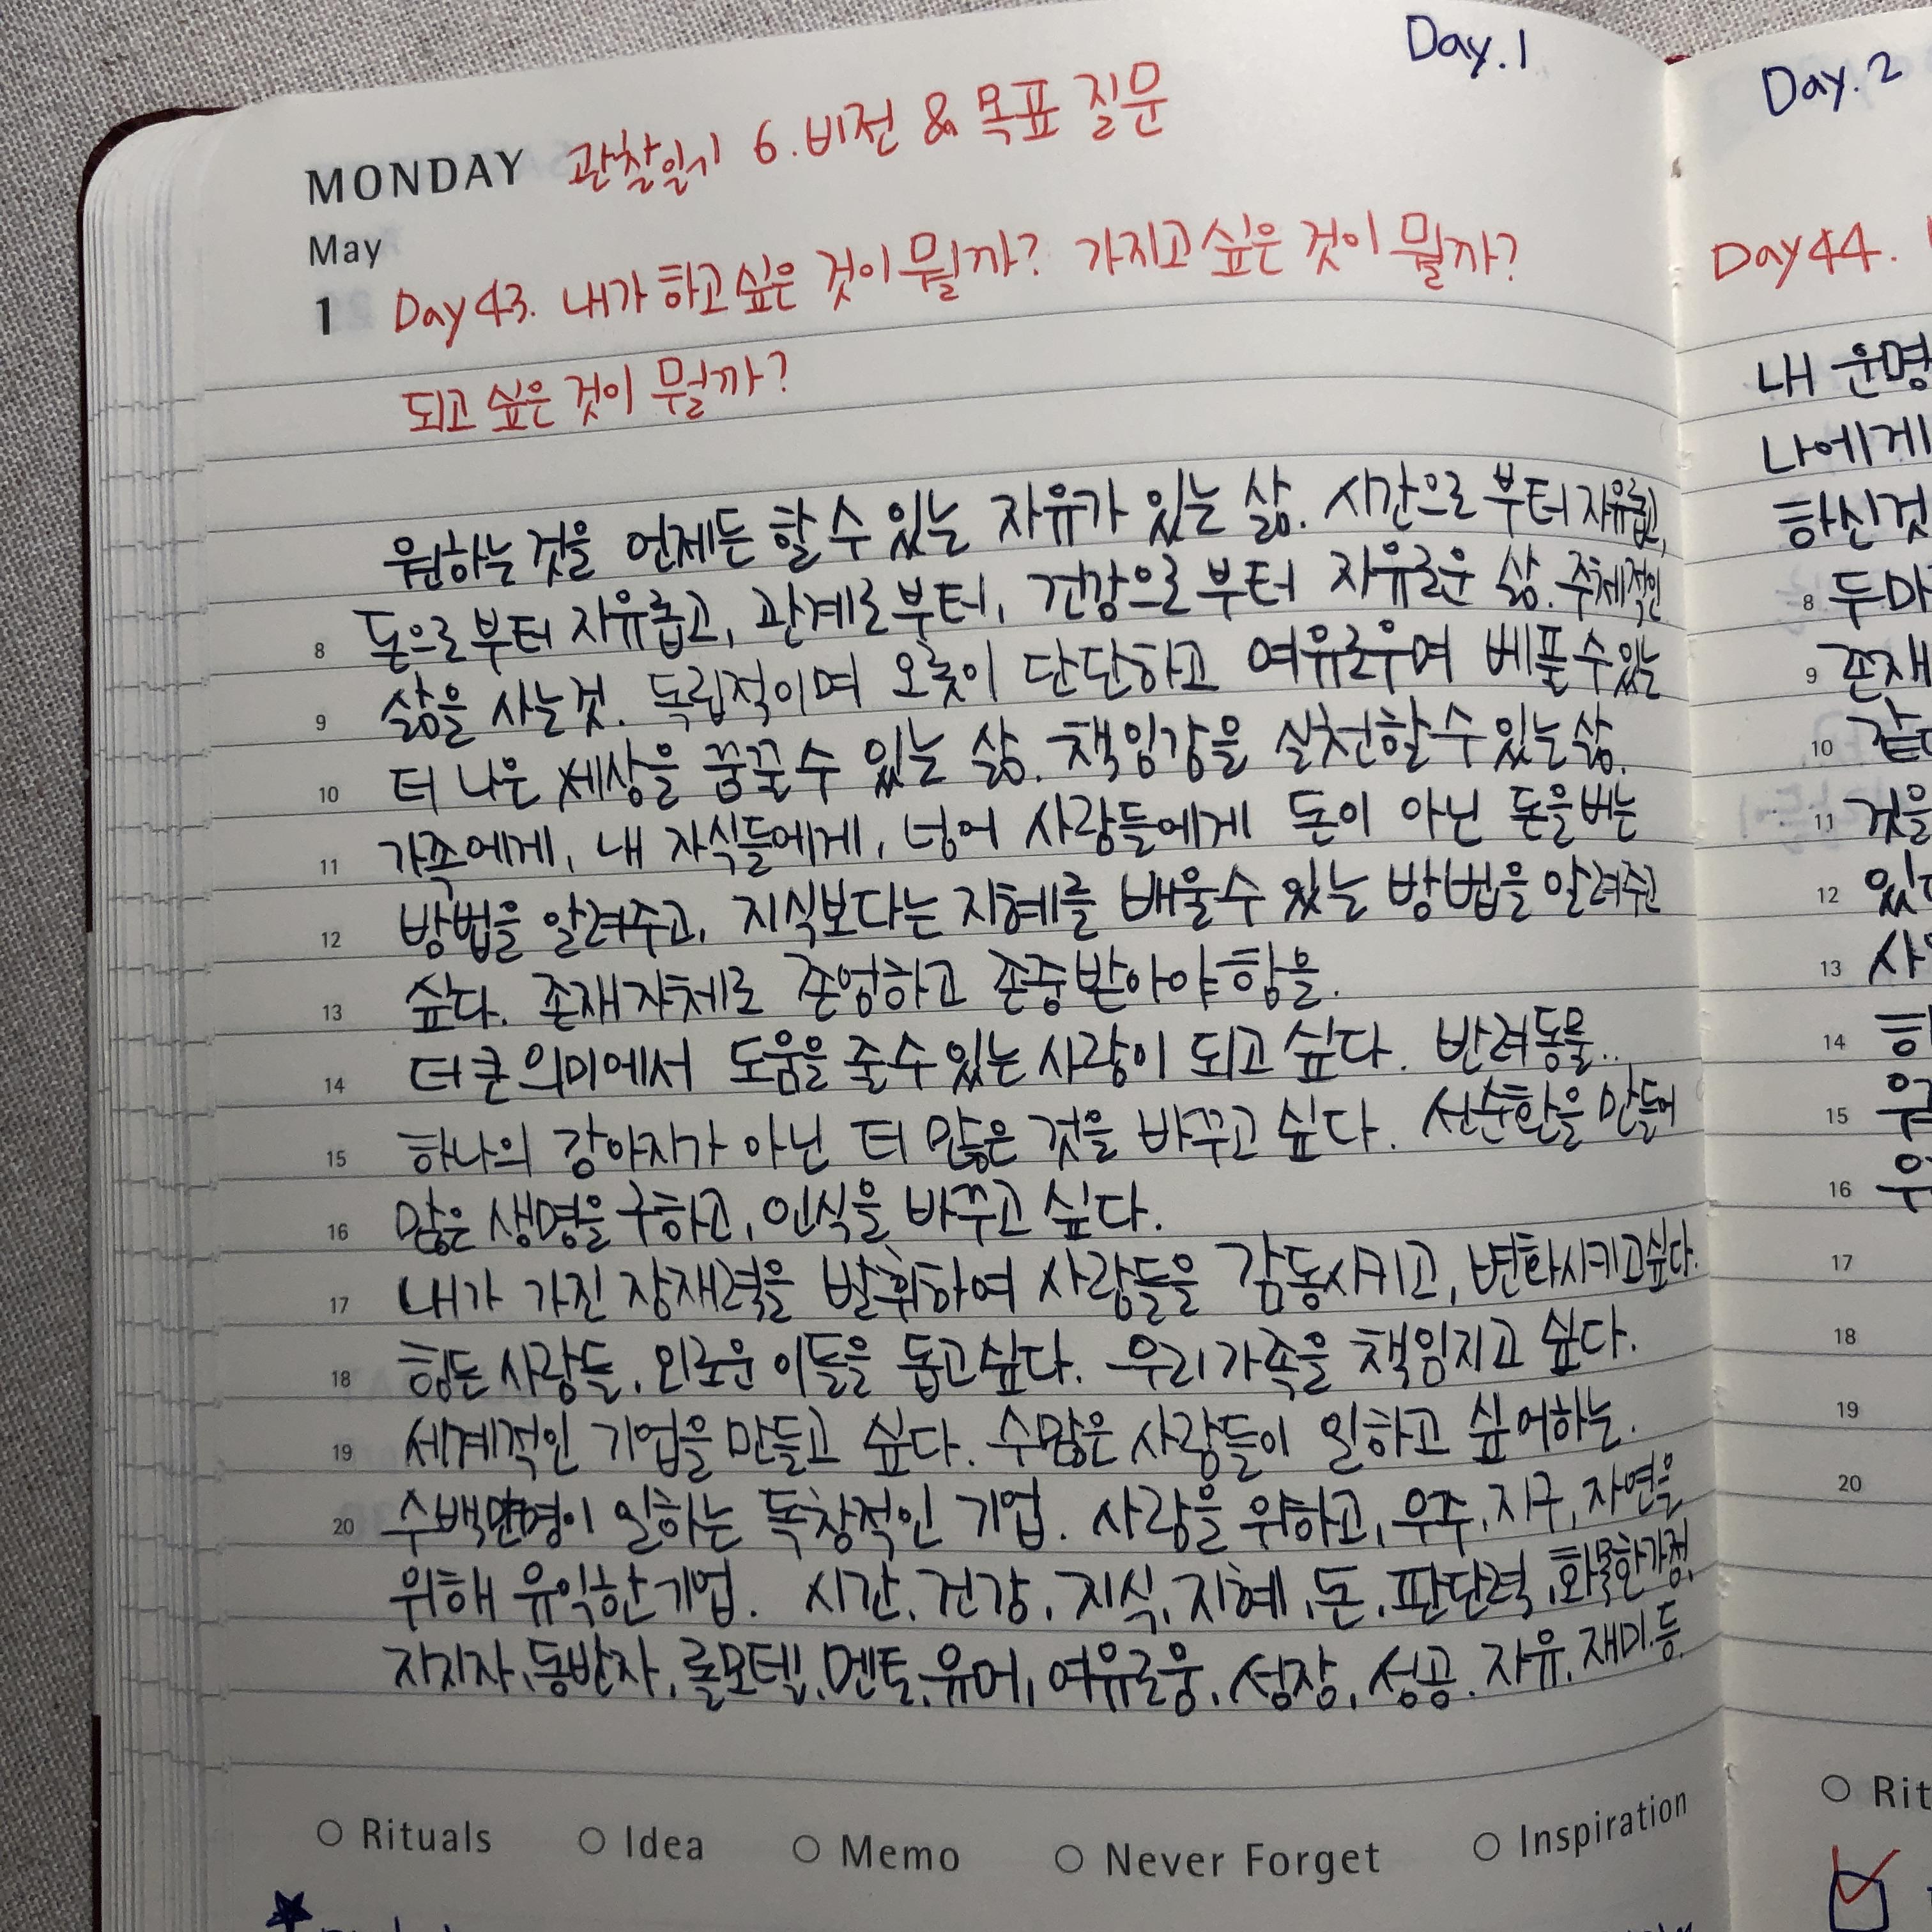 Day.1
MONDAY 관찰일기 6. 비전 & 목표 질문
May
1 Day 43. 내가 하고 싶은 것이 뭘까? 가지고 싶은 것이 뭘까?
되고 싶은 것이 뭘까?
원하는 것을 언제든 할 수 있는 자유가 있는 삶. 시간으로 부터 자유롭고,
8 돈으로 부터 자유롭고, 관계로부터, 건강으로 부터 자유로운 삶. 주체적인
9 삶을 사는 것. 독립적이며 오롯이 단단하고 여유로우며 베풀 수 있는
10 더 나은 세상을 꿈꿀 수 있는 삶. 책임감을 실천할 수 있는 삶.
11 가족에게, 내 자식들에게, 넘어 사람들에게 돈이 아닌 돈을 버는
12 방법을 알려주고, 지식보다는 지혜를 배울 수 있는 방법을 알려주고
13 싶다. 존재 자체로 존엄하고 존중받아야 함을.
14 더 큰 의미에서 도움을 줄 수 있는 사람이 되고 싶다. 반려동물..
15 하나의 강아지가 아닌 더 많은 것을 바꾸고 싶다. 선순환을 만들어
16 많은 생명을 구하고, 인식을 바꾸고 싶다.
17 내가 가진 잠재력을 발휘하여 사람들을 감동시키고, 변화시키고 싶다.
18 힘든 사람들, 외로운 이들을 돕고 싶다. 우리 가족을 책임지고 싶다.
19 세계적인 기업을 만들고 싶다. 수많은 사람들이 일하고 싶어하는.
20 수백만명이 일하는 독창적인 기업. 사람을 위하고, 우주, 지구, 자연을
위해 유익한 기업. 시간, 건강, 지식, 지혜, 돈, 판단력, 화목한 가정,
지지자, 동반자, 롤모델, 멘토, 유머, 여유로움, 성장, 성공, 자유, 재미 등
○ Rituals ○ Idea ○ Memo ○ Never Forget ○ Inspiration
Day.2
Day 44.
내 운명
나에게
하신것
8
9 존재
10
11 것을
12
13
14
15
16
17
18
19
20